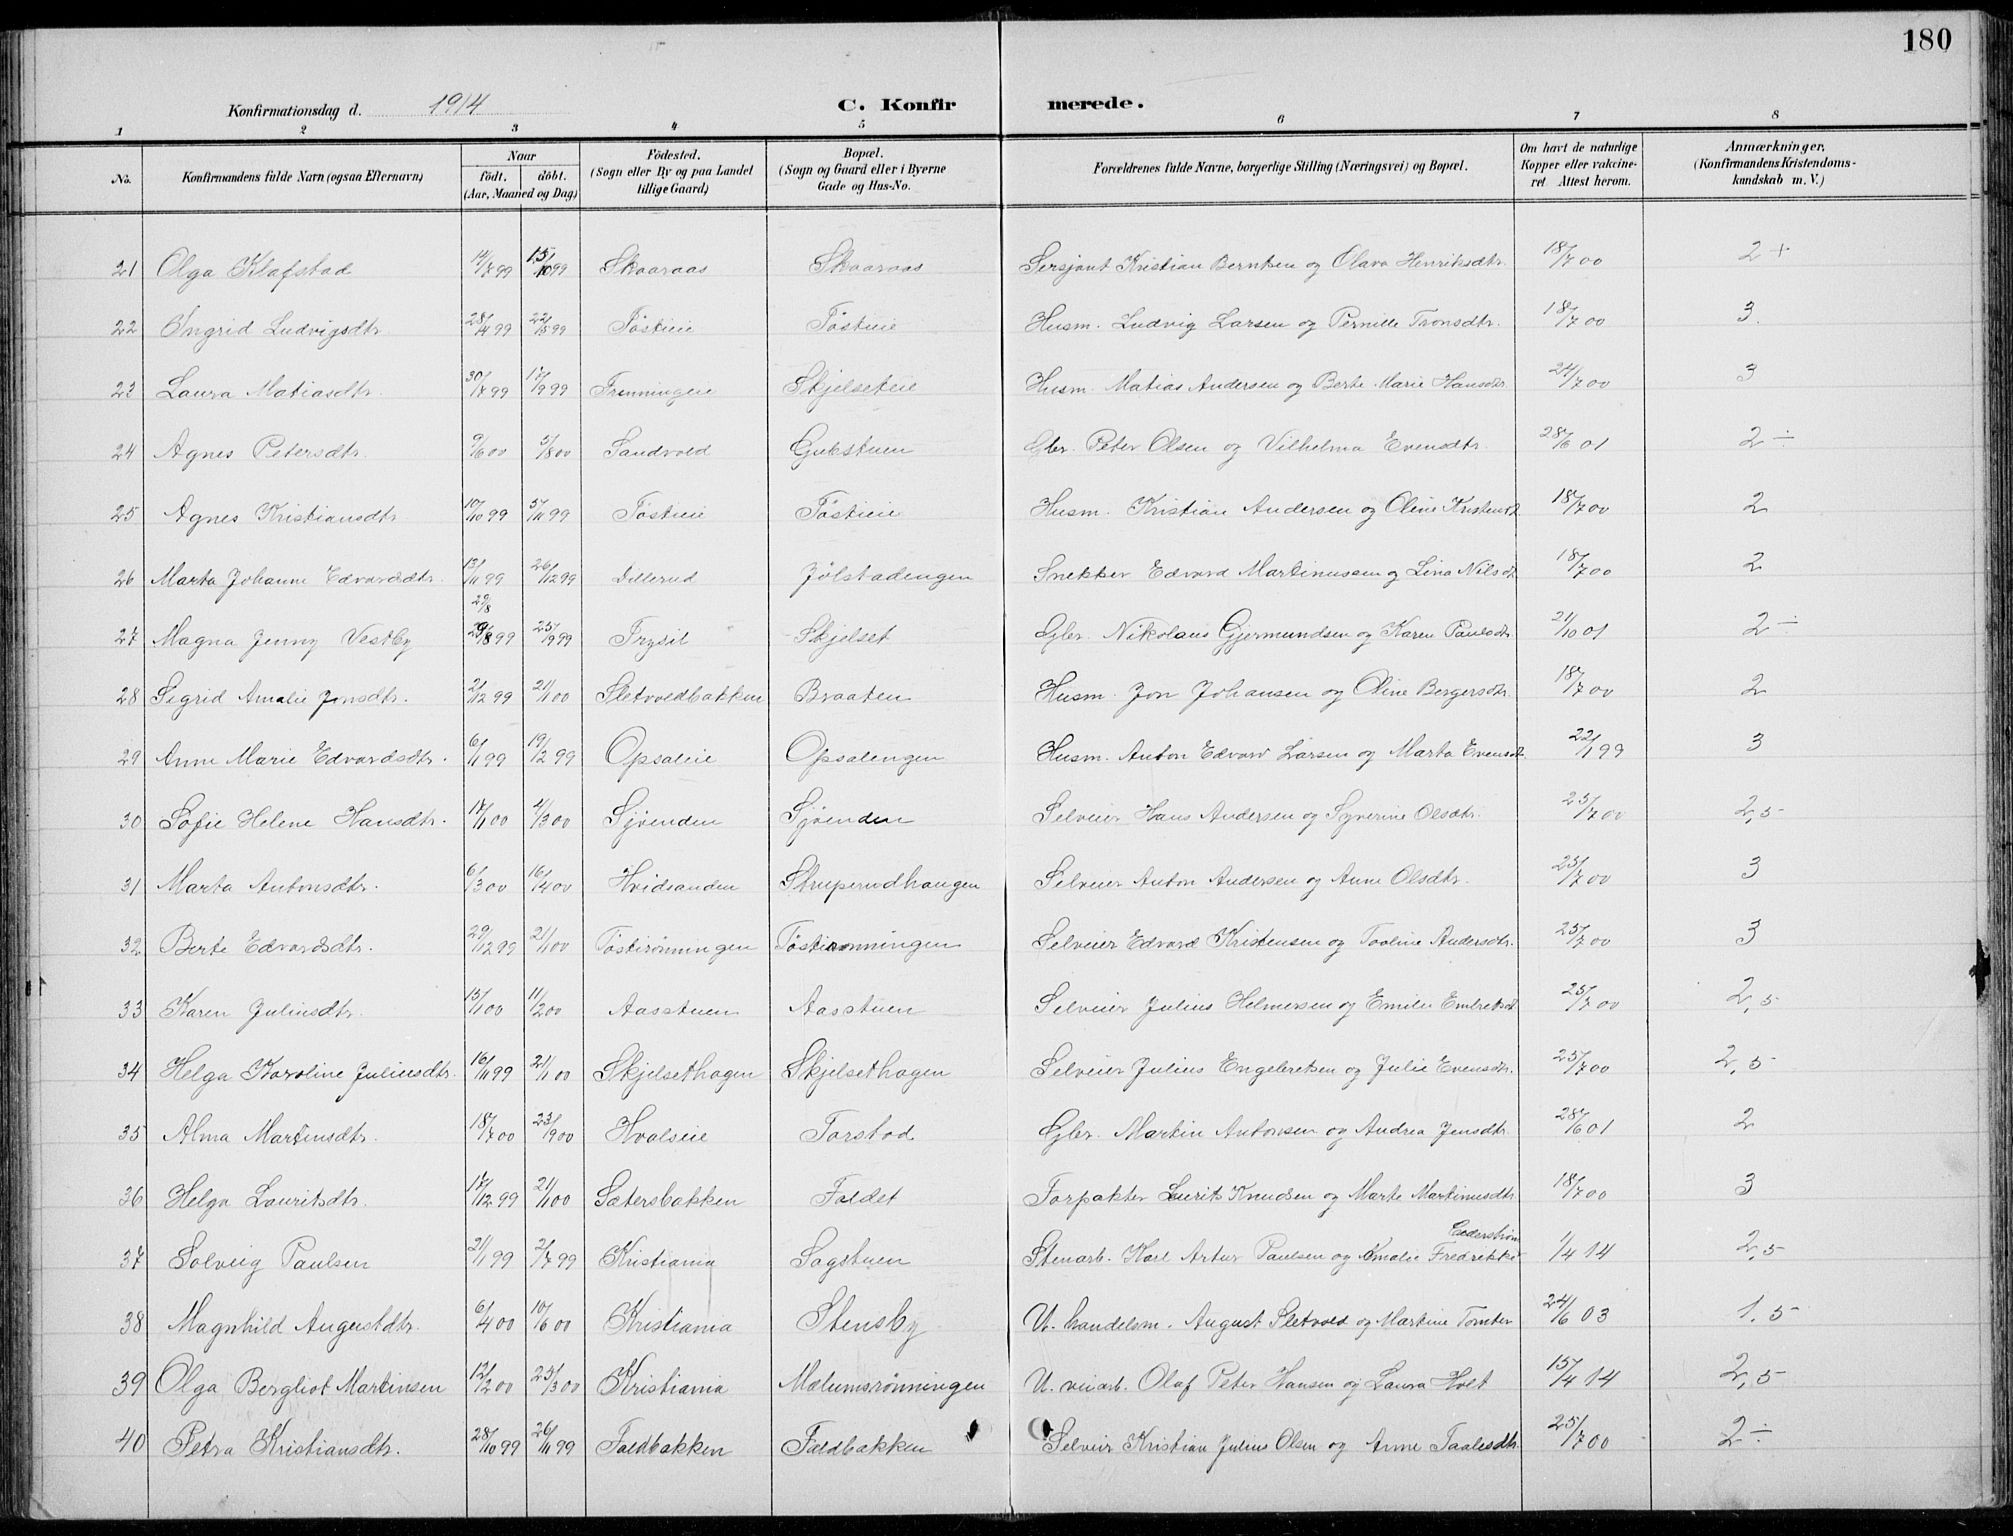 180
Konfirmationsdag d. 1914 C. Konfirmerede.
1 2 3 4 5 6 7 8
No. Konfirmandens fulde Navn (ogsaa Efternavn) Naar födt. döbt. (Aar, Maaned og Dag) Födested. (Sogn eller By og paa Landet tillige Gaard) Bopæl. (Sogn og Gaard eller i Byerne Gade og Hus-No. Forældrenes fulde Navne, borgerlige Stilling (Næringsvei) og Bopæl. Om havt de naturlige Kopper eller vakcineret Attest herom. Anmærkninger, (Konfirmandens Kristendomskundskab m. V.)
21 Olga Klafstad 14/7 99 15/10 99 Skaaraas Skaaraas Sersjant Kristian Berntsen og Olava Henriksdtr. 18/7 00 2+
22 Ingrid Ludvigsdtr. 28/4 99 22/5 99 Töstieie Töstieie Husm. Ludvig Larsen og Pernille Tronsdtr. 18/7 00 3.
23 Laura Matiasdtr. 30/7 99 17/9 99 Skjelseteie Husm. Matias Andersen og Berte Marie Hansdtr. 24/7 00 3
24 Agnes Petersdtr. 9/6 00 5/8 00 Sandvold Gubstuen Gbr. Peter Olsen og Vilhelma Evensdtr. 28/6 01 2÷
25 Agnes Kristiansdtr. 10/10 99 5/11 99 Töstieie Töstieie Husm. Kristian Andersen og Oline Kristensd. 18/7 00 2
26 Marta Johanne Edvardsdtr. 13/11 99 26/12 99 Dillerud Jölstadengen Snekker Edvard Martinussen og Lina Nilsdt. 18/7 00 2
29/8
27 Magna Jenny Vestby 29/8 99 25/9 99 Trysil Skjelset Gbr. Nikolaus Gjermundsen og Karen Paulsdtr. 21/10 01 2÷
28 Sigrid Amalie Jonsdtr. 2/12 99 21/1 00 Sletvoldbakken Braaten Husm. Jon Johansen og Oline Bergersdtr. 18/7 00 2
29 Anne Marie Edvardsdtr. 6/11 99 19/12 99 Opsaleie Opsalengen Husm. Anton Edvard Larsen og Marta Evensdt. 22/1 99 3
30 Sofie Helene Hansdtr. 17/1 00 4/3 00 Sjöenden Sjöenden Selveier Hans Andersen og Syverine Olsdtr. 25/7 00 2,5
31 Marta Antonsdtr. 6/3 00 16/4 00 Hvidsanden Struperudhaugen Selveier Anton Andersen og Anne Olsdtr. 25/7 00 3
32 Berte Edvardsdtr. 29/12 99 21/1 00 Töstirönningen Töstirönningen Selveier Edvard Kristensen og Taaline Andersdtr. 25/7 00 3
33 Karen Juliusdtr. 15/1 00 11/2 00 Aasstuen Aasstuen Selveier Julius Helmersen og Emilie Embretsdt 25/7 00 2,5
34 Helga Karoline Juliusdtr. 16/11 99 21/1 00 Skjelsethagen Skjelsethagen Selveier Julius Engebretsen og Julie Evensdtr. 25/7 00 2,5
35 Alma Martinsdtr. 18/7 00 23/9 00 Hvalseie Torstad Gbr. Martin Antonsen og Andrea Jensdtr. 28/6 01 2
36 Helga Lauritsdtr. 17/12 99 21/1 00 Sætersbakken Faldet Forpakter Laurits Knudsen og Marte Martinusdtr. 18/7 00 3
Cederström
37 Solveig Paulsen 21/1 99 2/7 99 Kristiania Sagstuen Stenarb. Karl Artur Paulsen og Amalie Fredrikke 1/4 14 2,5
38 Magnhild Augustdtr. 6/4 00 10/6 00 Kristiania Stensby U. handelsm. August Sletvold og Martine Tomter 24/6 03 1,5
39 Olga Bergliot Martinsen 12/2 00 25/3 00 Kristiania Mælumsrönningen U. veiarb. Olaf Peter Hansen og Laura Holt 15/4 14 2,5
40 Petra Kristiansdtr. 28/10 99 26/11 99 Faldbakken Faldbakken Selveier Kristian Julius Olsen og Anne Taalesdtr. 25/7 00 2÷